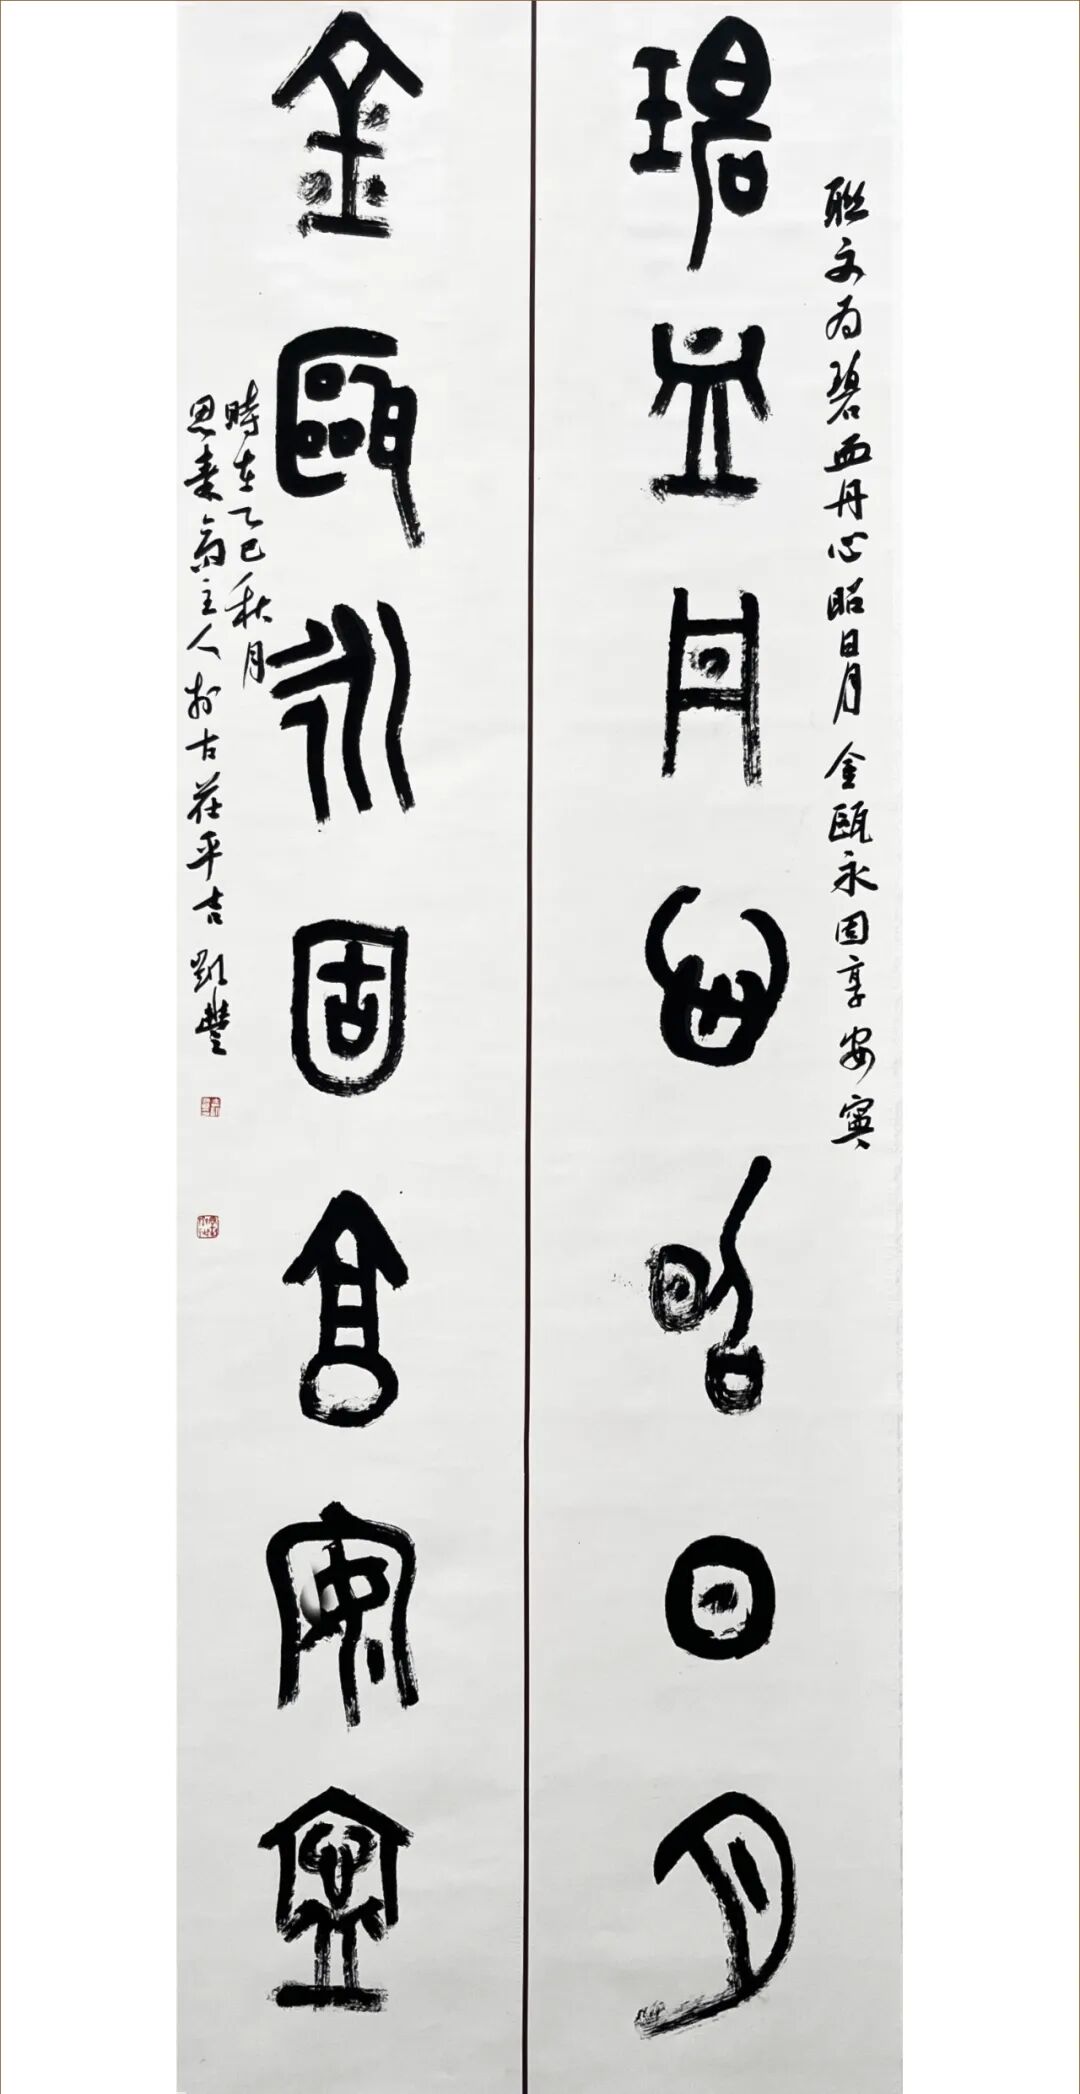 聯文为碧血丹心昭日月 金甌永固享安寧
碧血丹心昭日月
金甌永固享安寧
時在乙巳秋月
思斋主人於古茌平吉豐